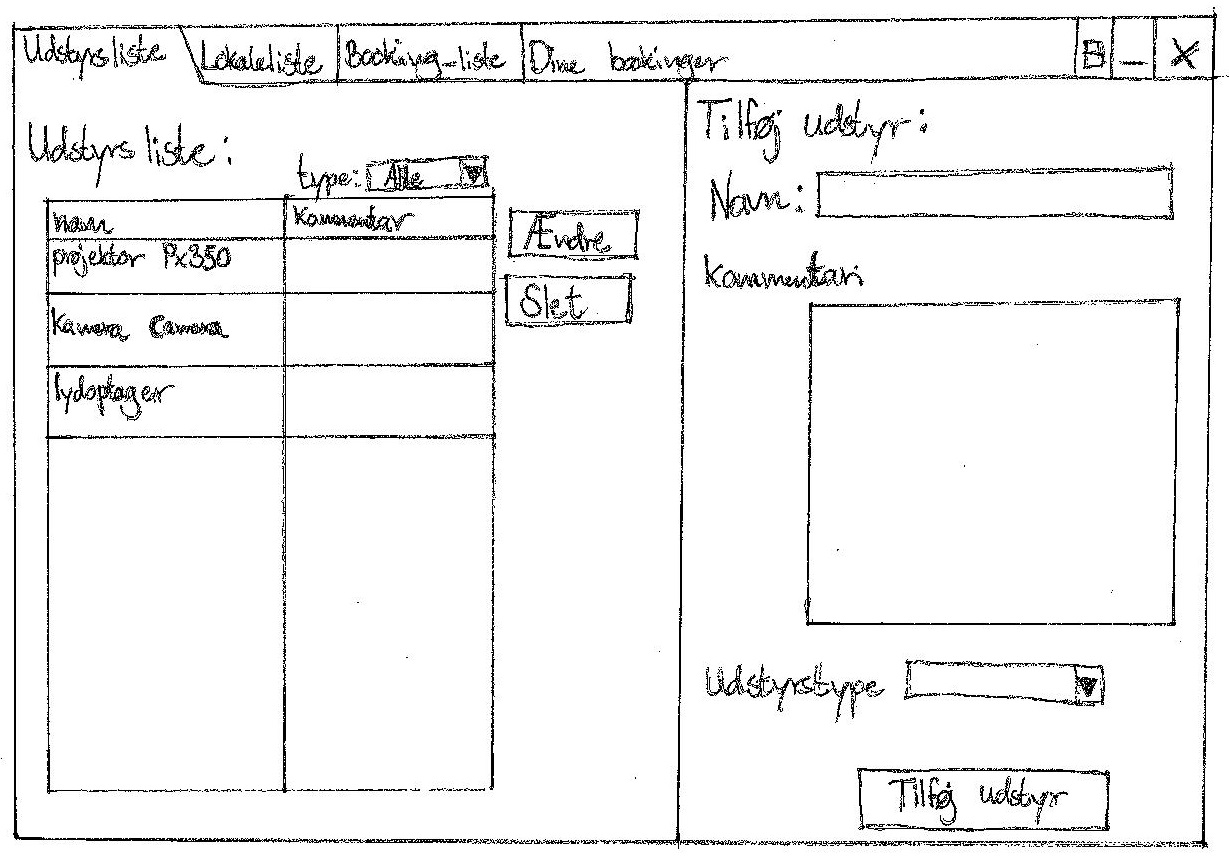 Udstyrsliste
Lokaleliste
Booking-liste
Dine bookinger
B _ X
Udstyrs liste:
type: Alle
navn
Kommentar
projektor Px350
Kamera Camera
lydoptager
Ændre
Slet
Tilføj udstyr:
Navn:
Kommentar:
Udstyrstype
Tilføj udstyr